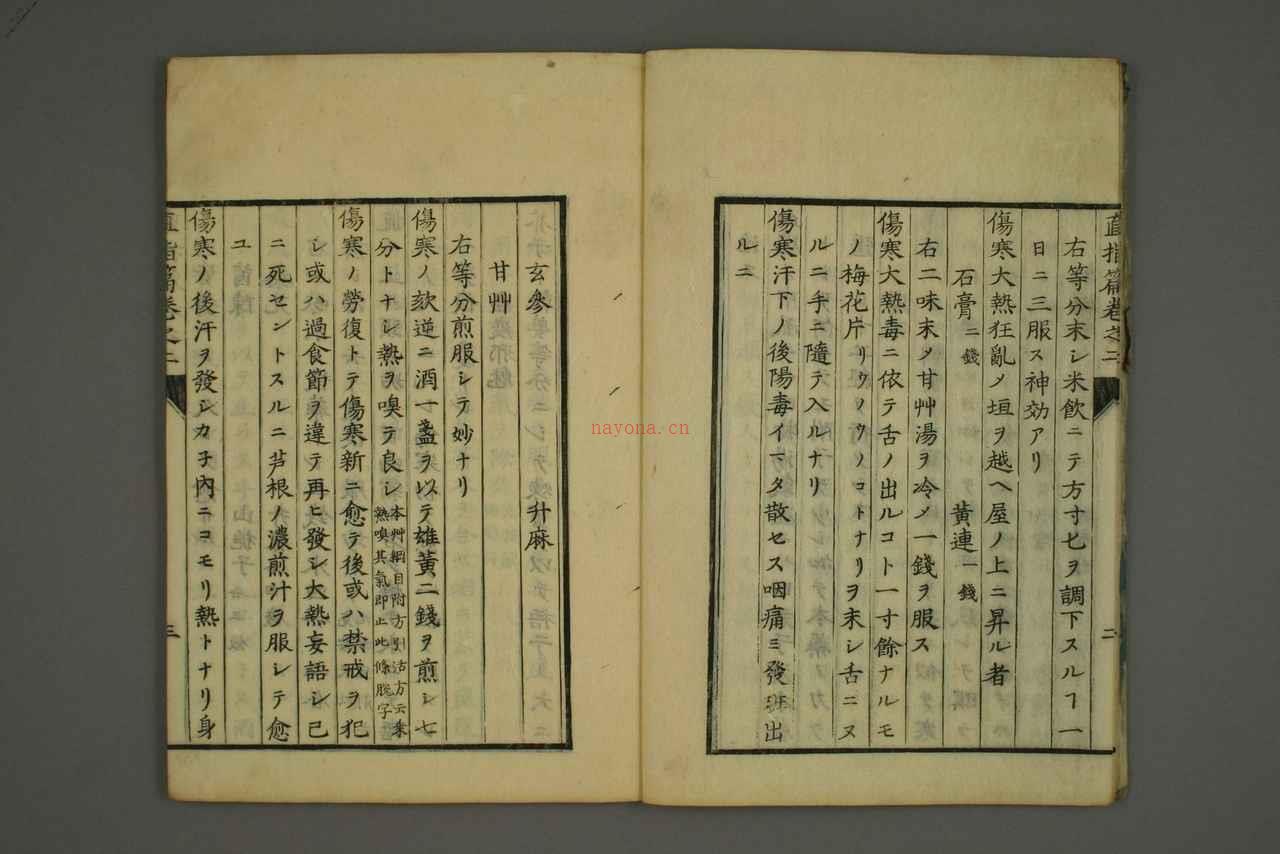 直指篇卷之二
二
右等分末シ米飲ニテ方寸匕ヲ調下スルヿ一
日ニ三服ス神効アリ
傷寒大熱狂亂メ垣ヲ越ヘ屋ノ上ニ昇ル者
石膏二錢 黄連一錢
右二味末メ甘艸湯ヲ冷メ一錢ヲ服ス
傷寒大熱毒ニ依テ舌ノ出ルコト一寸餘ナルモ
ノ梅花片リウノウノコトナリヲ末シ舌ニヌ
ルニ手ニ隨テ入ルナリ
傷寒汗下ノ後陽毒イマタ散セス咽痛ミ發斑出
ルニ
玄參 升麻
甘艸
右等分煎服シテ妙ナリ
傷寒ノ欬逆ニ酒一盞ヲ以テ雄黄二錢ヲ煎シ七
分トナシ熱ヲ嗅テ良シ本艸綱目附方引活方云乘
熱嗅其氣即止此條脱字
傷寒ノ勞復トテ傷寒新ニ愈テ後或ハ禁戒ヲ犯
シ或ハ過食節ヲ違テ再ヒ發シ大熱妄語シ已
ニ死セントスルニ芦根ノ濃煎汁ヲ服シテ愈
ユ
傷寒ノ後汗ヲ發シカ子内ニコモリ熱トナリ身
直指篇卷之二
三
nayona.cn